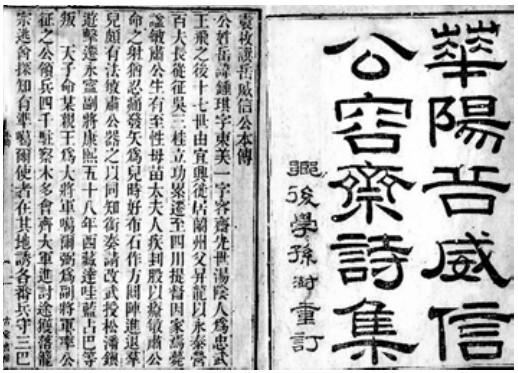 華陽岳威信
公容齋詩集
後學孫澍重訂
諡岳威信公本傳
公姓岳諱鍾琪字東美一字容齋先世湯陰人爲忠武
王飛之後十七世由宜興徙居蘭州父昇龍以永泰營
百夫長從征吳三桂立功累遷至四川提督因家焉薨
諡敏肅公生有至性母苗太夫人疾刲股以療敏肅公
命之射猶忍痛發矢爲兒時好布石作方圓陣進退羣
兒頗有法敏肅公器之以同知銜奏請改武授松潘鎮
遊擊遷永寧副將康熙五十八年西藏達哇藍占巴等
叛　天子命某親王爲大將軍噶爾弼爲副將軍率公
征之公領兵四千駐察木多會齊大軍進討途獲落籠
宗逃酋探知有準噶爾使者在其地誘各番兵守三巴